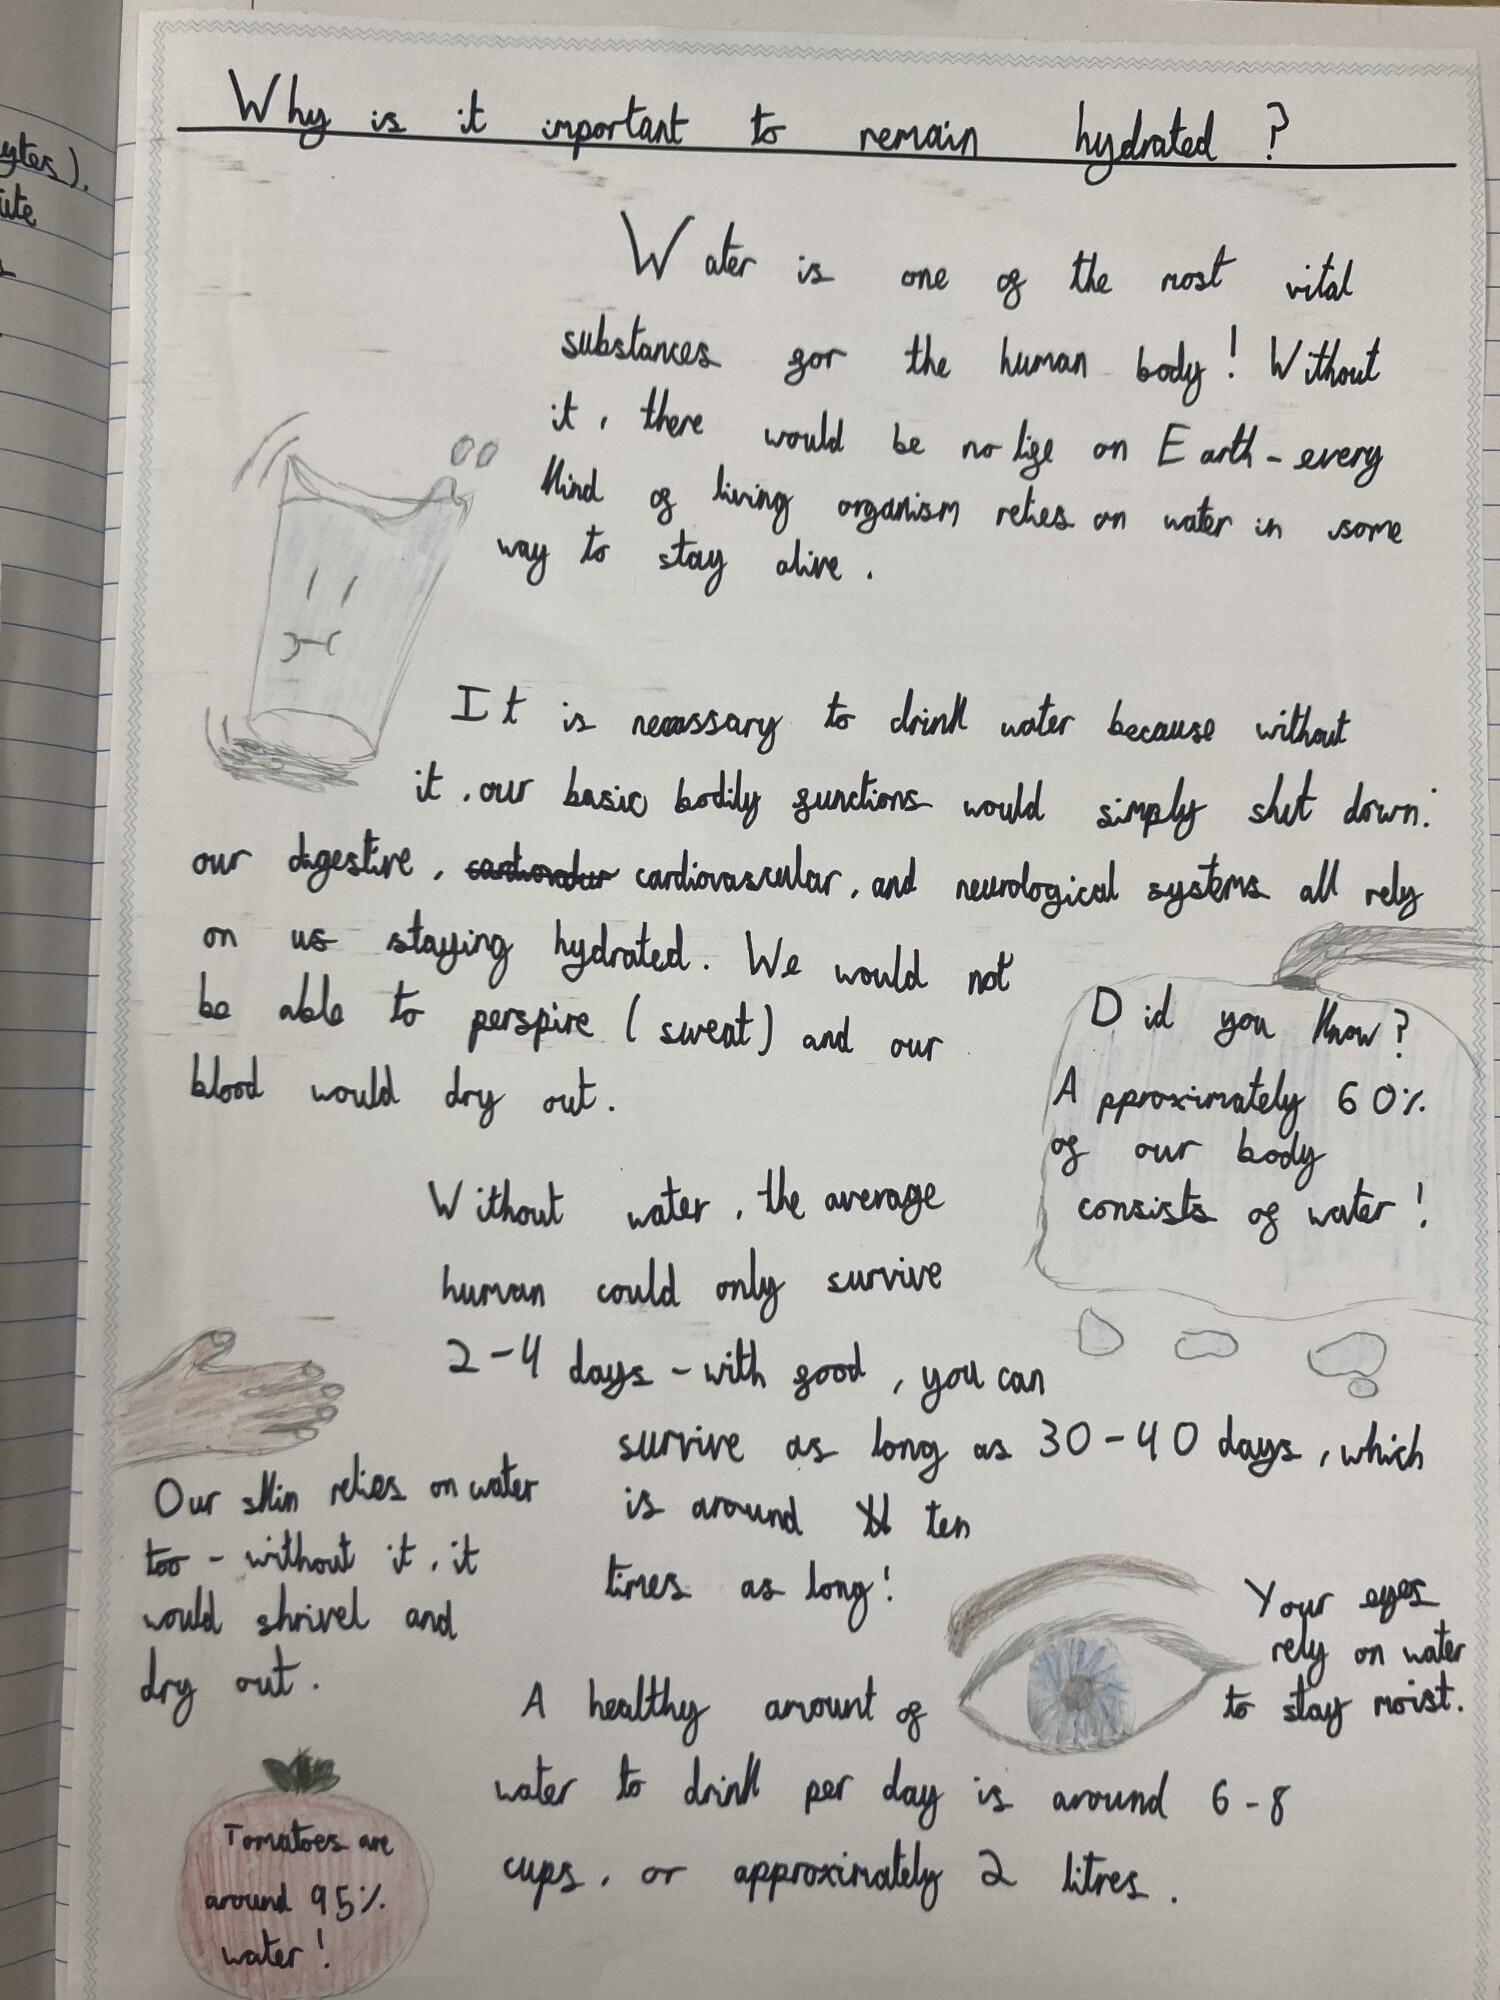 ytes).
Why is it important to remain hydrated?
Water is one of the most vital
substances for the human body! Without
it, there would be no life on Earth - every
kind of living organism relies on water in some
way to stay alive.
It is necessary to drink water because without
it, our basic bodily functions would simply shut down:
our digestive, cardiovascular, and neurological systems all rely
on us staying hydrated. We would not
be able to perspire (sweat) and our
blood would dry out.
Did you know?
Approximately 60%
of our body
consists of water!
Without water, the average
human could only survive
2-4 days - with good, you can
survive as long as 30-40 days, which
is around ten
times as long!
Our skin relies on water
too - without it, it
would shrivel and
dry out.
Your eyes
rely on water
to stay moist.
A healthy amount of
water to drink per day is around 6-8
cups, or approximately 2 litres.
Tomatoes are
around 95%
water!